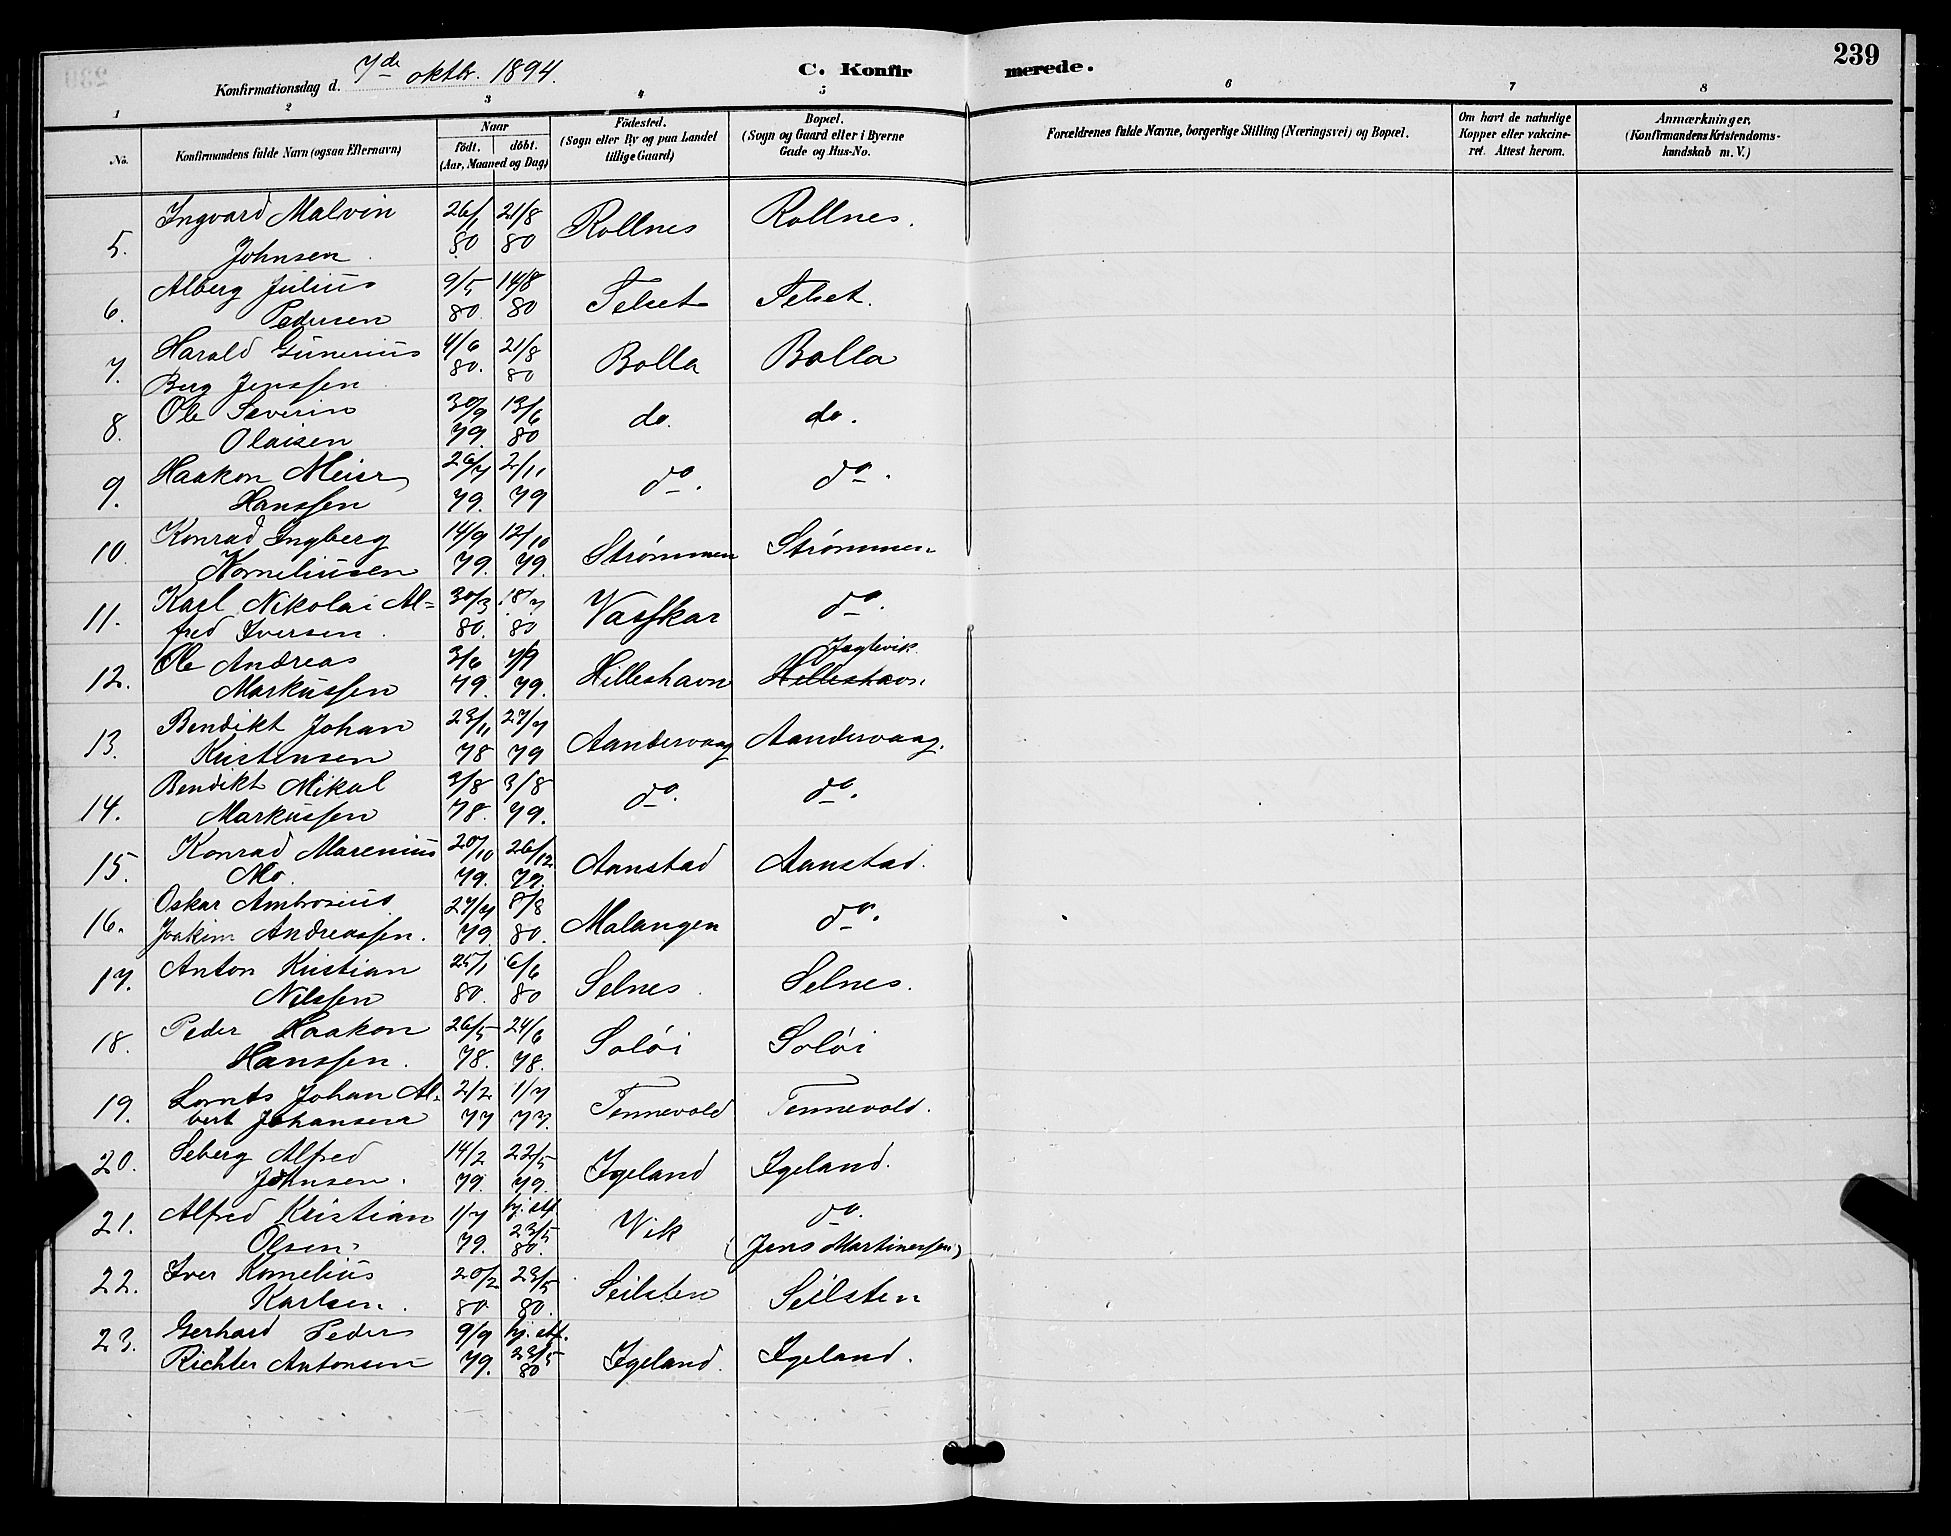 239
Konfirmationsdag d. 7de oktbr. 1894.
C. Konfirmerede.
1 2 3 4 5 6 7 8
No.
Konfirmandens fulde Navn (ogsaa Efternavn)
Naar
födt. döbt.
(Aar, Maaned og Dag)
Födested.
(Sogn eller By og paa Landet
tillige Gaard)
Bopæl.
(Sogn og Gaard eller i Byerne
Gade og Hus-No.
Forældrenes fulde Navne, borgerlige Stilling (Næringsvei) og Bopæl.
Om havt de naturlige
Kopper eller vakcine-
ret. Attest herom.
Anmærkninger,
(Konfirmandens Kristendoms-
kundskab m. V.)
Ingvard Malvin 26/1 21/8 Rollnes Rollnes.
5. Johnsen. 80 80
Alberg Julius 9/5 14/8 Telset Telset.
6. Pedersen 80. 80
Harald Gunerius 4/6 21/8 Bolla Bolla
7. Berg Jenssen 80. 80
Ole Severin 30/9 13/6 do. do.
8. Olaisen 79. 80
Haakon Meier 26/7 2/11 do. do.
9. Hanssen 79. 79
Konrad Ingberg 14/9 12/10 Strømmen Strømmen
10. Korneliusen 79. 79.
Karl Nikolai Al= 30/3 18/7 Vasskar do.
11. fred Iversen. 80. 80
Ole Andreas 3/6 7/9 Hilleshavn Jegtevik Hilleshavn.
12. Markussen 79. 79.
Bendikt Johan 23/11 27/7 Aandervaag Aandervaag.
13. Kristensen 78 79
Bendikt Mikal 3/8 3/8 do. do.
14. Markussen 78. 79.
Konrad Marenius 20/10 26/12 Aanstad Aanstad.
15. Mo. 79. 79.
Oskar Ambrosius 27/4 8/8 Malangen do.
16. Joakim Andreassen. 79. 80.
Anton Kristian 25/1 6/6 Selnes. Selnes.
17. Nilssen 80. 80
Peder Haakon 26/5 24/6 Solöi Solöi
18. Hanssen. 78. 78.
Lornts Johan Al- 2/2 1/7 Tennevold Tennevold.
19. bert Johansen 77 77.
Seberg Alfred 14/2 22/5 Igeland Igeland.
20. Johnsen. 79. 79.
Alfred Kristian 1/7 hj. stf. Vik do.
21. Olsen. 79. 23/5 80. (Jens Martinessen)
Iver Kornelius 20/2 23/5 Seilsten Seilsten
22. Karlsen. 80 80.
Gerhard Peder 9/9 hj. stf. Igeland. Igeland.
23. Richter Antonsen 79. 23/5 80